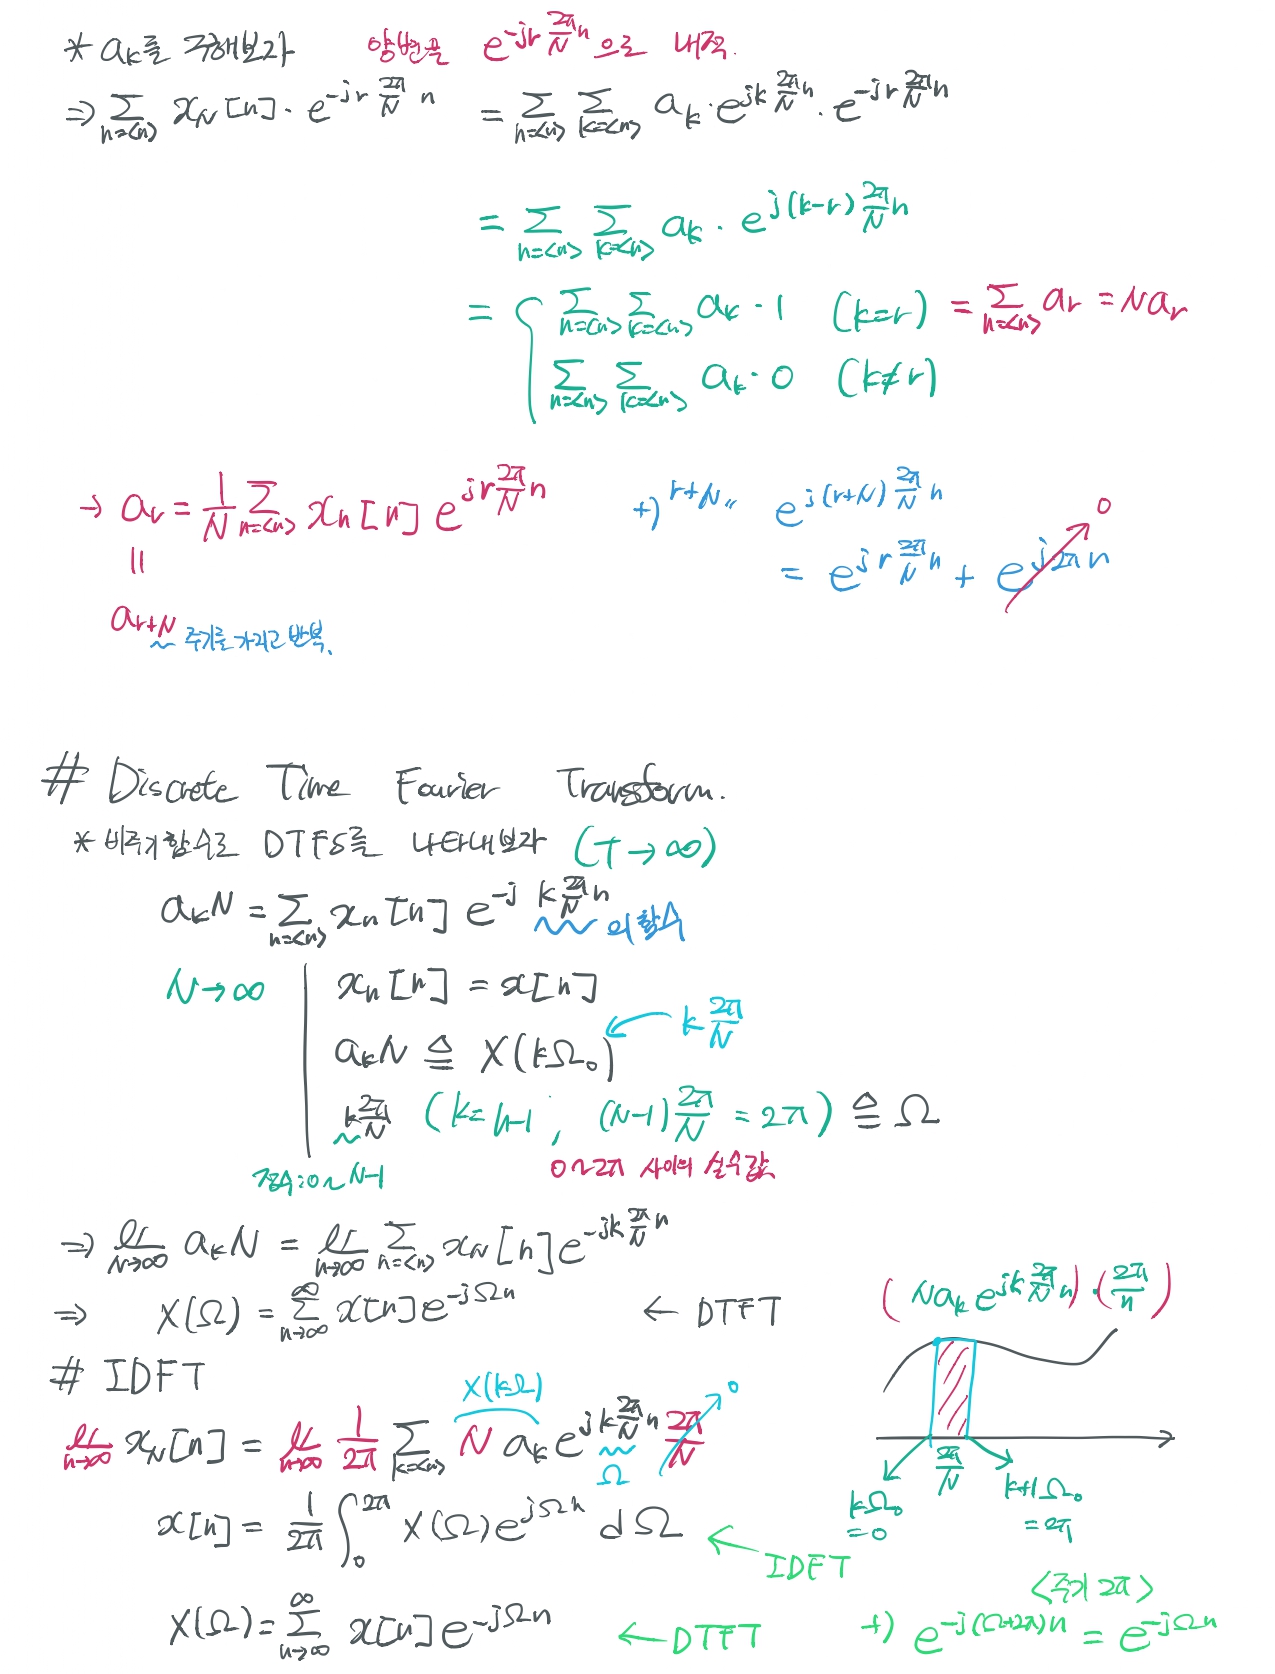 * aₖ를 구해보자 양변을 e^{-jr 2π/N n}으로 내적.
⇒ Σ_{n=<n>} x_N[n]·e^{-jr 2π/N n} = Σ_{n=<n>} Σ_{k=<n>} aₖ·e^{jk 2π/N n}·e^{-jr 2π/N n}
= Σ_{n=<n>} Σ_{k=<n>} aₖ·e^{j(k-r) 2π/N n}
= { Σ_{n=<n>} Σ_{k=<n>} aₖ·1 (k=r) = Σ_{n=<n>} a_r = N a_r
Σ_{n=<n>} Σ_{k=<n>} aₖ·0 (k≠r)
→ a_r = 1/N Σ_{n=<n>} x_n[n] e^{jr 2π/N n} +) r+N〃 e^{j(r+N) 2π/N n}
= e^{jr 2π/N n} + e^{j2πn} ↗ 0
||
a_{r+N} 주기를 가지고 반복.
# Discrete Time Fourier Transform.
* 비주기함수로 DTFS를 나타내보자 (T→∞)
aₖN = Σ_{n=<n>} x_n[n] e^{-j k 2π/N n} 의 함수
N→∞ | x_n[n] = x[n]
aₖN ≜ X(kΩ₀) ← k 2π/N
k 2π/N (k=n-1; (N-1) 2π/N = 2π) ≜ Ω
정수:0~N-1 0~2π 사이의 실수값
⇒ lim_{N→∞} aₖN = lim_{n→∞} Σ_{n=<n>} x_N[n] e^{-jk 2π/N n}
⇒ X(Ω) = Σ_{n→∞}^{∞} x[n] e^{-jΩn} ← DTFT
(N aₖ e^{jk 2π/N n})·(2π/n)
# IDFT
X(kΩ)
lim_{n→∞} x_N[n] = lim_{n→∞} 1/2π Σ_{k=<n>} N aₖ e^{jk 2π/N n} 2π/N ↗ 0
Ω
2π/N
kΩ₀ =0
k+1Ω₀ =2π
x[n] = 1/2π ∫₀^{2π} X(Ω) e^{jΩn} dΩ ← IDFT
<주기 2π>
X(Ω) = Σ_{n→∞}^{∞} x[n] e^{-jΩn} ← DTFT +) e^{-j(Ω+2π)n} = e^{-jΩn}